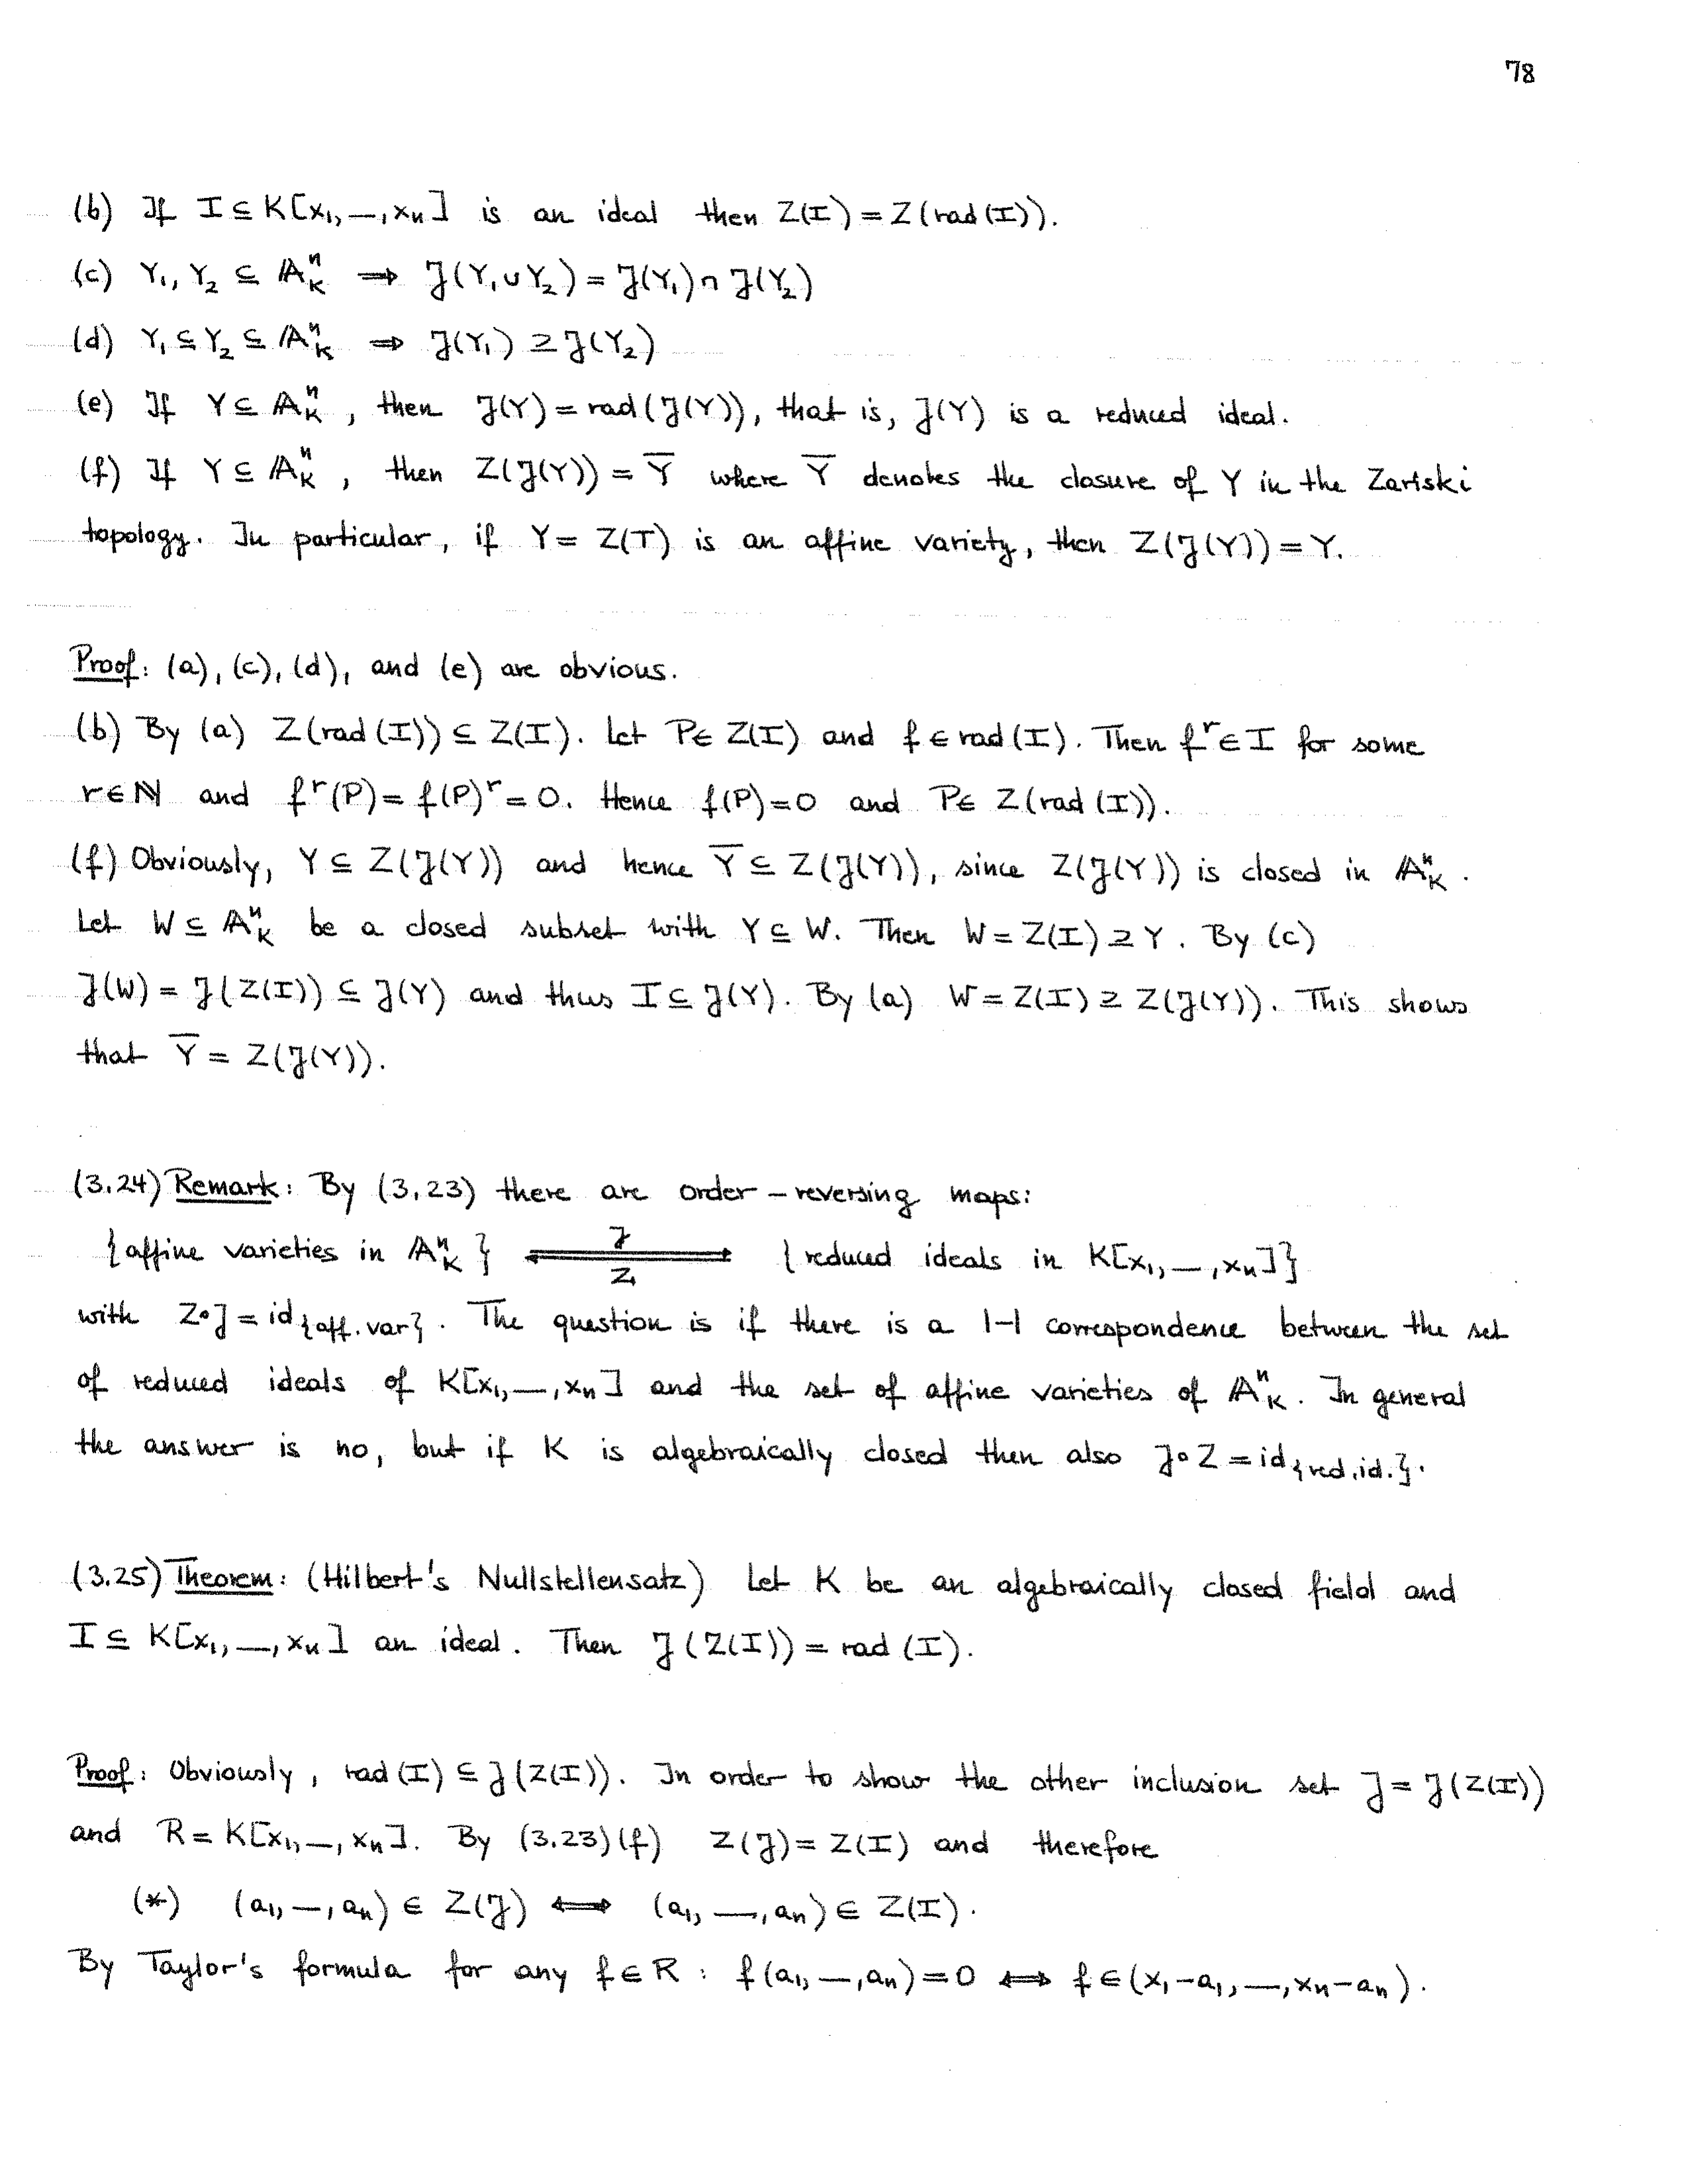 78
(b) If I ⊆ K[x₁,—,xₙ] is an ideal then Z(I) = Z(rad(I)).
(c) Y₁, Y₂ ⊆ 𝔸ⁿ_K ⟹ 𝒥(Y₁∪Y₂) = 𝒥(Y₁)∩𝒥(Y₂)
(d) Y₁ ⊆ Y₂ ⊆ 𝔸ⁿ_K ⟹ 𝒥(Y₁) ⊇ 𝒥(Y₂)
(e) If Y ⊆ 𝔸ⁿ_K, then 𝒥(Y) = rad(𝒥(Y)), that is, 𝒥(Y) is a reduced ideal.
(f) If Y ⊆ 𝔸ⁿ_K, then Z(𝒥(Y)) = Y̅ where Y̅ denotes the closure of Y in the Zariski
topology. In particular, if Y = Z(T) is an affine variety, then Z(𝒥(Y)) = Y.
Proof: (a), (c), (d), and (e) are obvious.
(b) By (a) Z(rad(I)) ⊆ Z(I). Let P∈ Z(I) and f ∈ rad(I). Then fʳ∈ I for some
r∈ℕ and fʳ(P) = f(P)ʳ = 0. Hence f(P)=0 and P∈ Z(rad(I)).
(f) Obviously, Y ⊆ Z(𝒥(Y)) and hence Y̅ ⊆ Z(𝒥(Y)), since Z(𝒥(Y)) is closed in 𝔸ⁿ_K.
Let W ⊆ 𝔸ⁿ_K be a closed subset with Y ⊆ W. Then W = Z(I) ⊇ Y. By (c)
𝒥(W) = 𝒥(Z(I)) ⊆ 𝒥(Y) and thus I ⊆ 𝒥(Y). By (a) W = Z(I) ⊇ Z(𝒥(Y)). This shows
that Y̅ = Z(𝒥(Y)).
(3.24) Remark: By (3.23) there are order-reversing maps:
{affine varieties in 𝔸ⁿ_K} ⟷ 𝒥 Z {reduced ideals in K[x₁,—,xₙ]}
with Z∘𝒥 = id_{aff.var}. The question is if there is a 1-1 correspondence between the set
of reduced ideals of K[x₁,—,xₙ] and the set of affine varieties of 𝔸ⁿ_K. In general
the answer is no, but if K is algebraically closed then also 𝒥∘Z = id_{red.id.}.
(3.25) Theorem: (Hilbert's Nullstellensatz) Let K be an algebraically closed field and
I ⊆ K[x₁,—,xₙ] an ideal. Then 𝒥(Z(I)) = rad(I).
Proof: Obviously, rad(I) ⊆ 𝒥(Z(I)). In order to show the other inclusion set 𝒥 = 𝒥(Z(I))
and R = K[x₁,—,xₙ]. By (3.23)(f) Z(𝒥) = Z(I) and therefore
(*) (a₁,—,aₙ) ∈ Z(𝒥) ⟺ (a₁,—,aₙ) ∈ Z(I).
By Taylor's formula for any f∈R : f(a₁,—,aₙ)=0 ⟺ f∈(x₁-a₁,—,xₙ-aₙ).